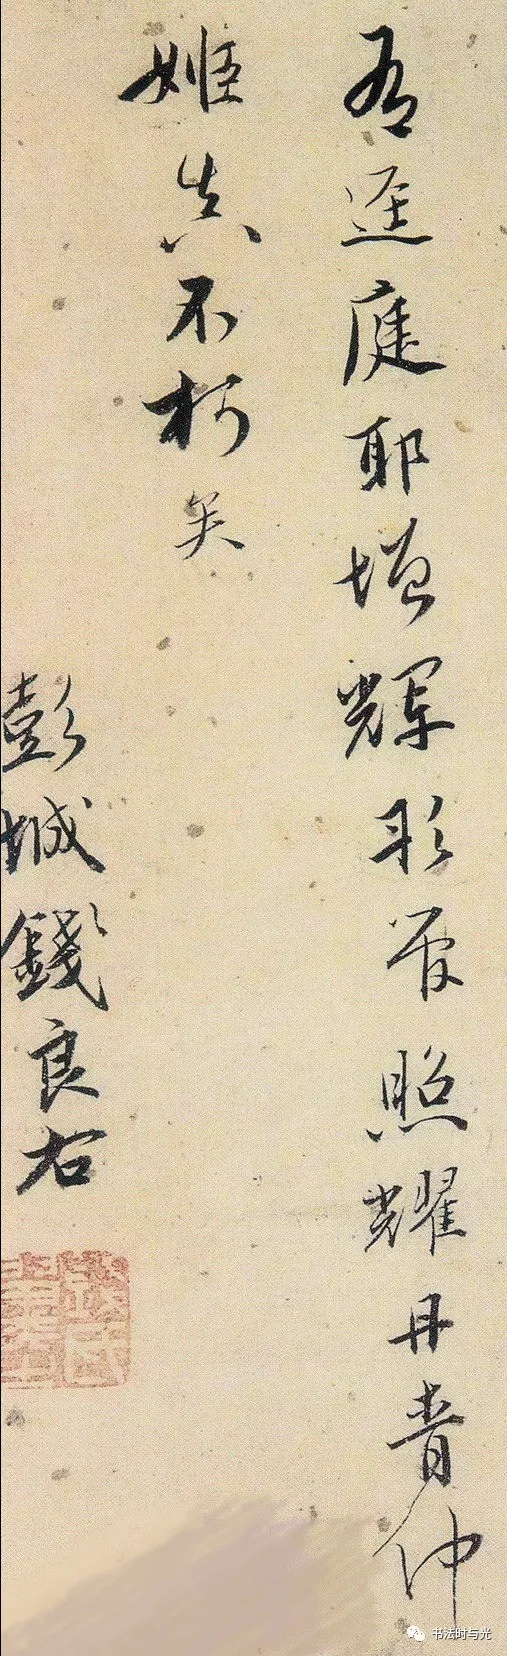 有逕庭耶增輝彤管照耀丹青仲
姬真不朽矣
彭城錢良右
书法时与光